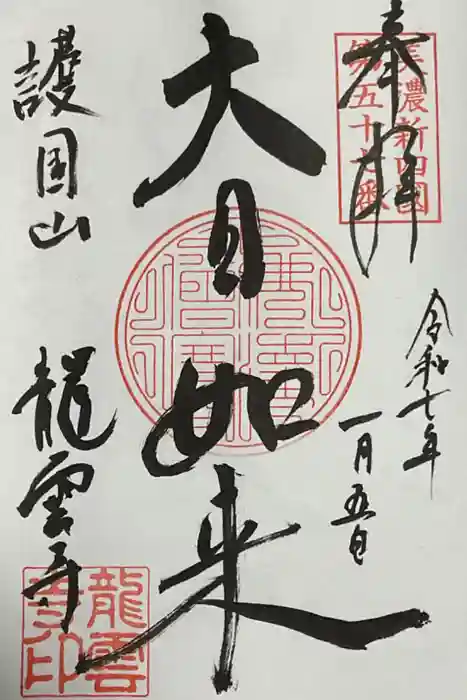 奉拝
美濃新四國
第五十七番
令和七年
一月五日
大日如来
護国山
龍雲寺
龍雲
寺印